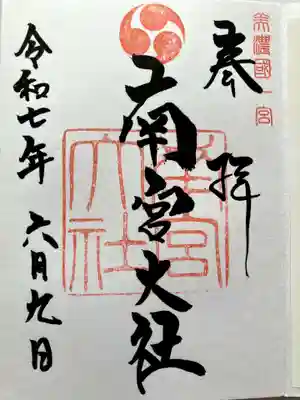 美濃國一宮
奉拝
南宮大社
令和七年六月九日